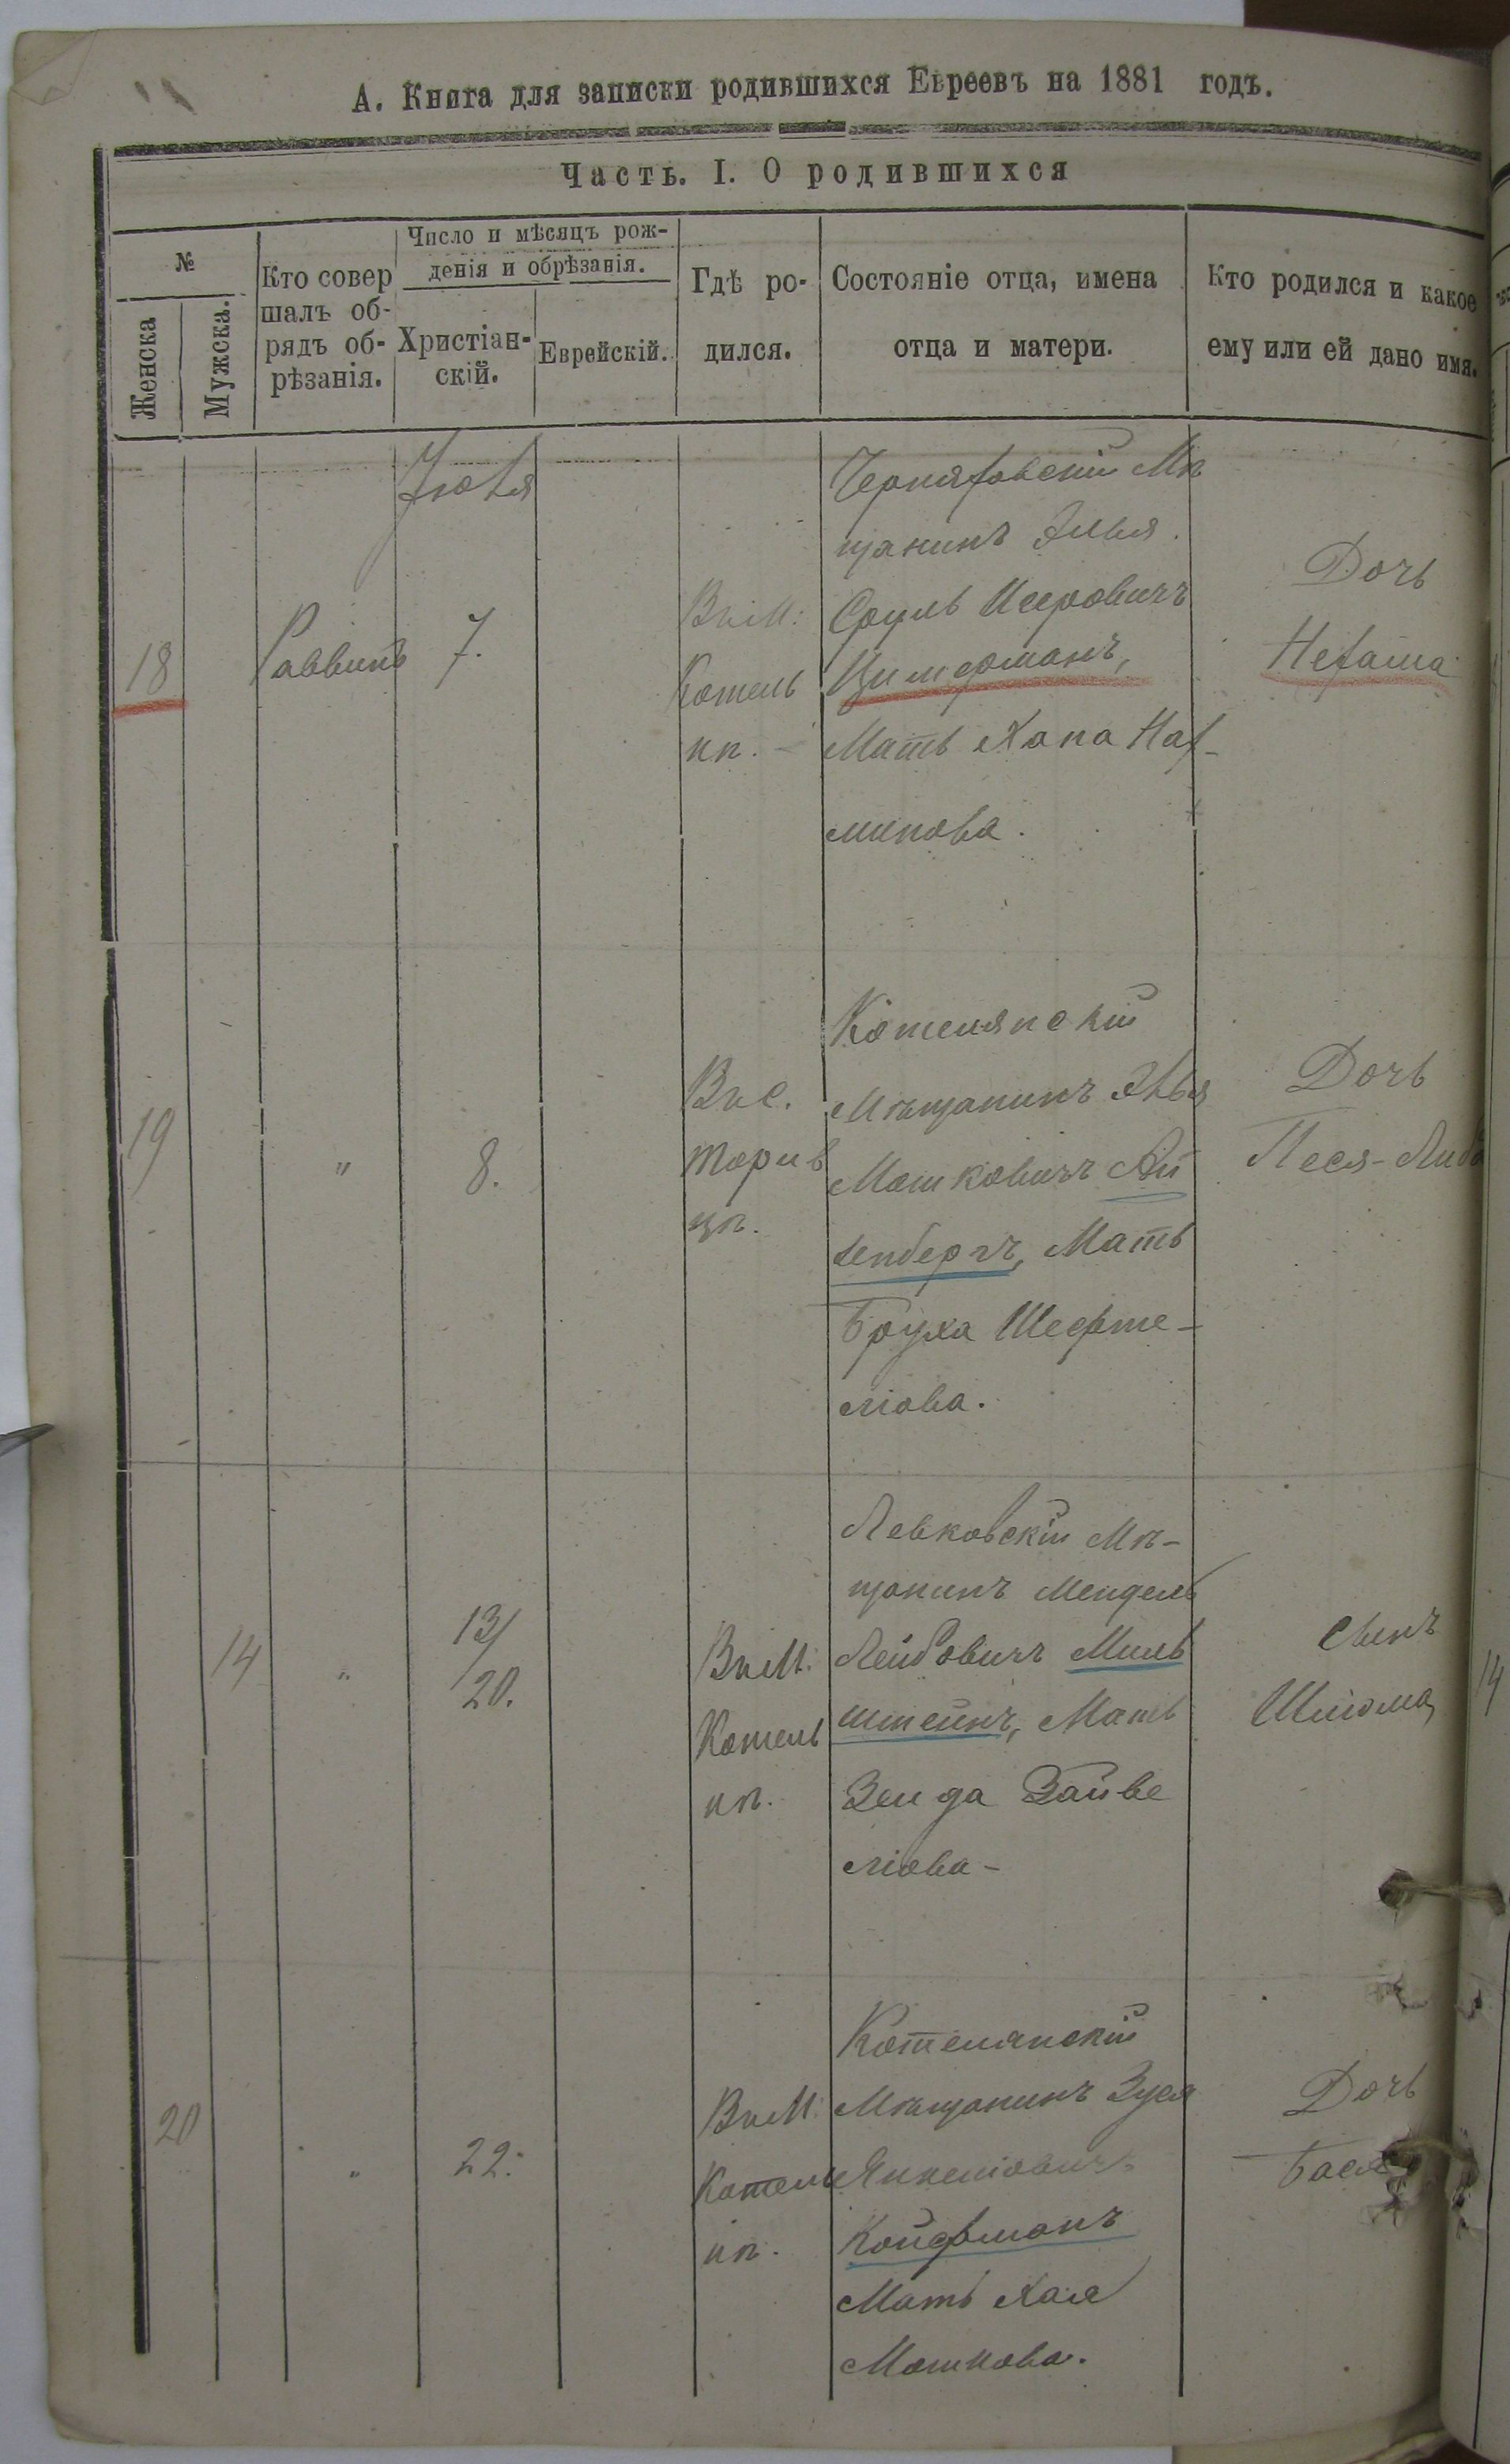 А. Книга для записки родившихся Евреевъ на 1881 годъ.
Часть. I. О родившихся
№
Женска
Мужска.
Кто совер
шалъ об-
рядъ об-
рѣзанія.
Число и мѣсяцъ рож-
денія и обрѣзанія.
Христіан-
скій.
Еврейскій.
Гдѣ ро-
дился.
Состояніе отца, имена
отца и матери.
Кто родился и какое
ему или ей дано имя.
Іюля
18
Раввинъ
7.
Въ М:
Котель
нѣ.
Черняховскій Мѣ
щанинъ
Сруль Исеровичъ
Цимерманъ,
Мать Хана Нах-
минова.
Дочь
Нехама
19
"
8.
Въ С.
Торчи
цѣ.
Котелянскій
Мѣщанинъ
Мошковичъ Ай
зенбергъ, Мать
Бруха Шефте-
ліова.
Дочь
Песя-Либа
14
"
13/
20.
Въ М.
Котель
нѣ.
Левковскій Мѣ-
щанинъ Мендель
Лейбовичъ Миль
штейнъ, Мать
Зельда Зайве
ліова-
Сынъ
Шліома
14
20
"
22.
Въ М:
Котель
нѣ.
Котелянскій
Мѣщанинъ Зуся
Янкеліовичъ
Койфманъ
Мать Хая
Мошкова.
Дочь
Бася